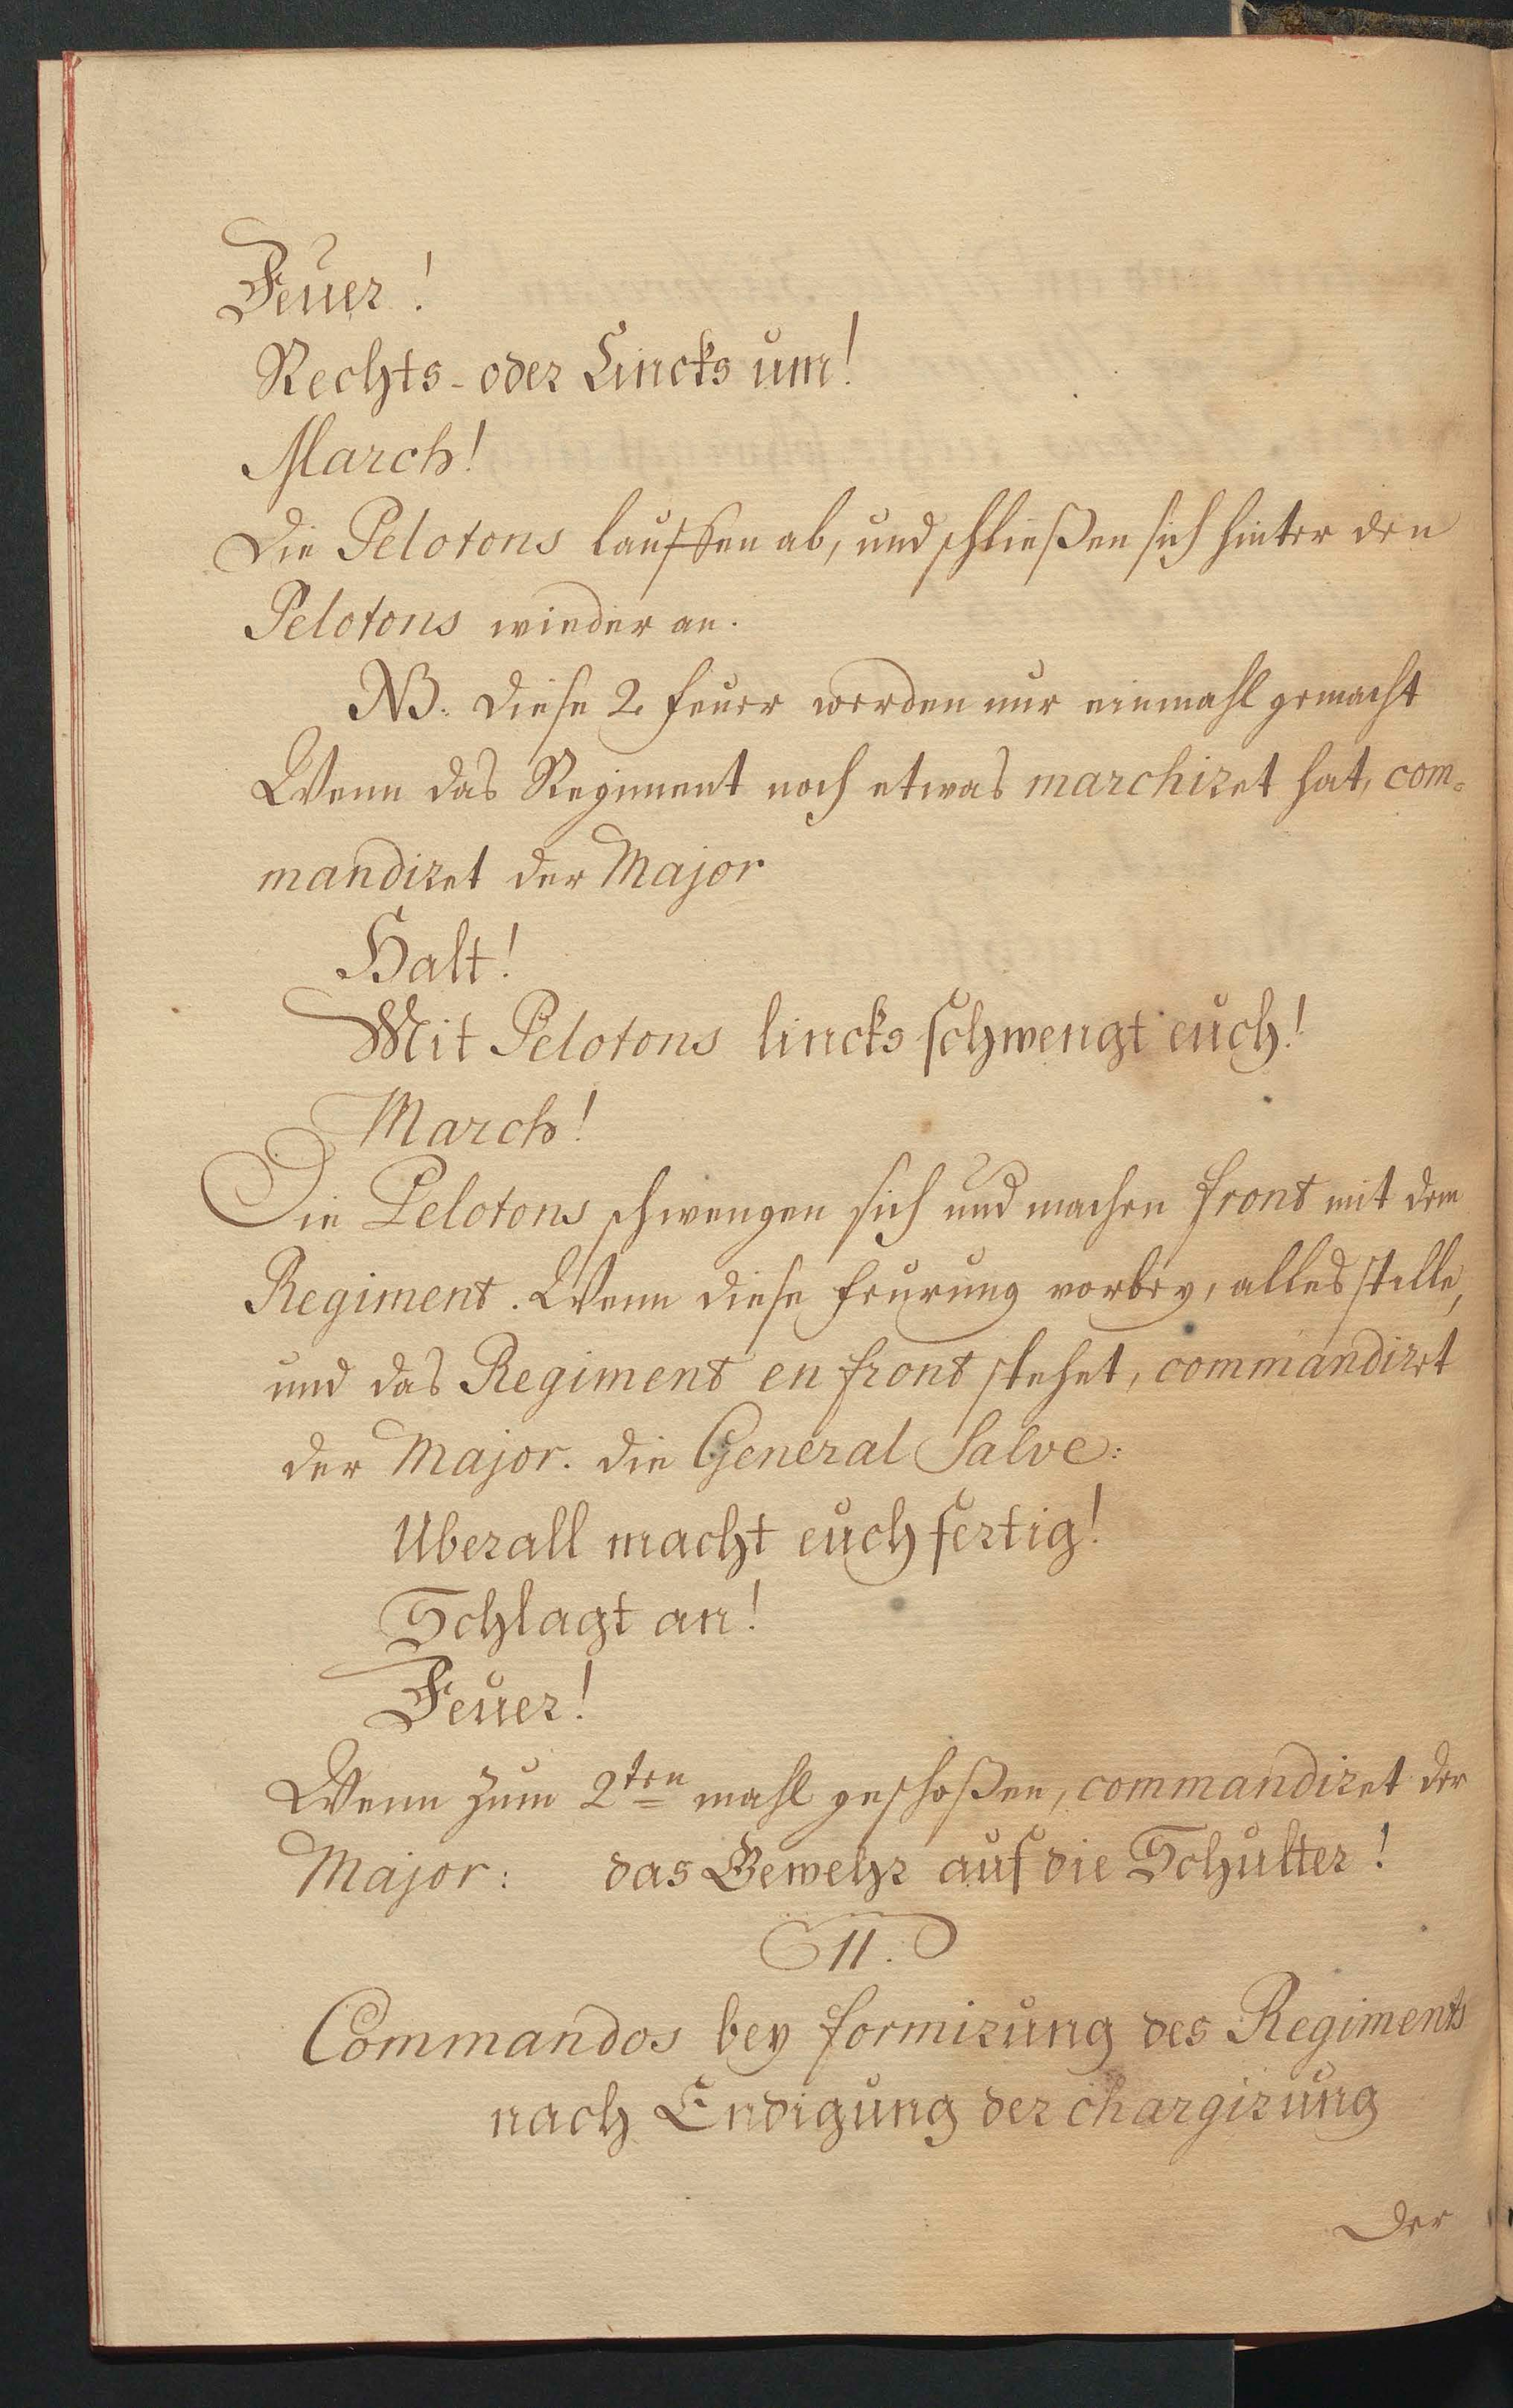 Feuer!
Rechts- oder Lincks um!
March!
Die Pelotons lauffen ab, und schließen sich hinter den
Pelotons wieder an.
NB. Diese 2. Feuer werden nur einmahl gemacht
Wenn das Regiment noch etwas marchiret hat, com-
mandiret der Major
Halt!
Mit Pelotons lincks schwengt euch!
March!
Die Pelotons schwengen sich und machen front mit dem
Regiment. Wenn diese Feurung vorbey, alles stille,
und das Regiment en front stehet, commandirt
der Major. die General Salve:
Uberall macht euch fertig!
Schlagt an!
Feuer!
Wenn zum 2ten mahl geschoßen, commandiret der
Major: das Gewehr auf die Schulter!
11.
Commandos bey formirung des Regiments
nach Endigung der chargirung
Der